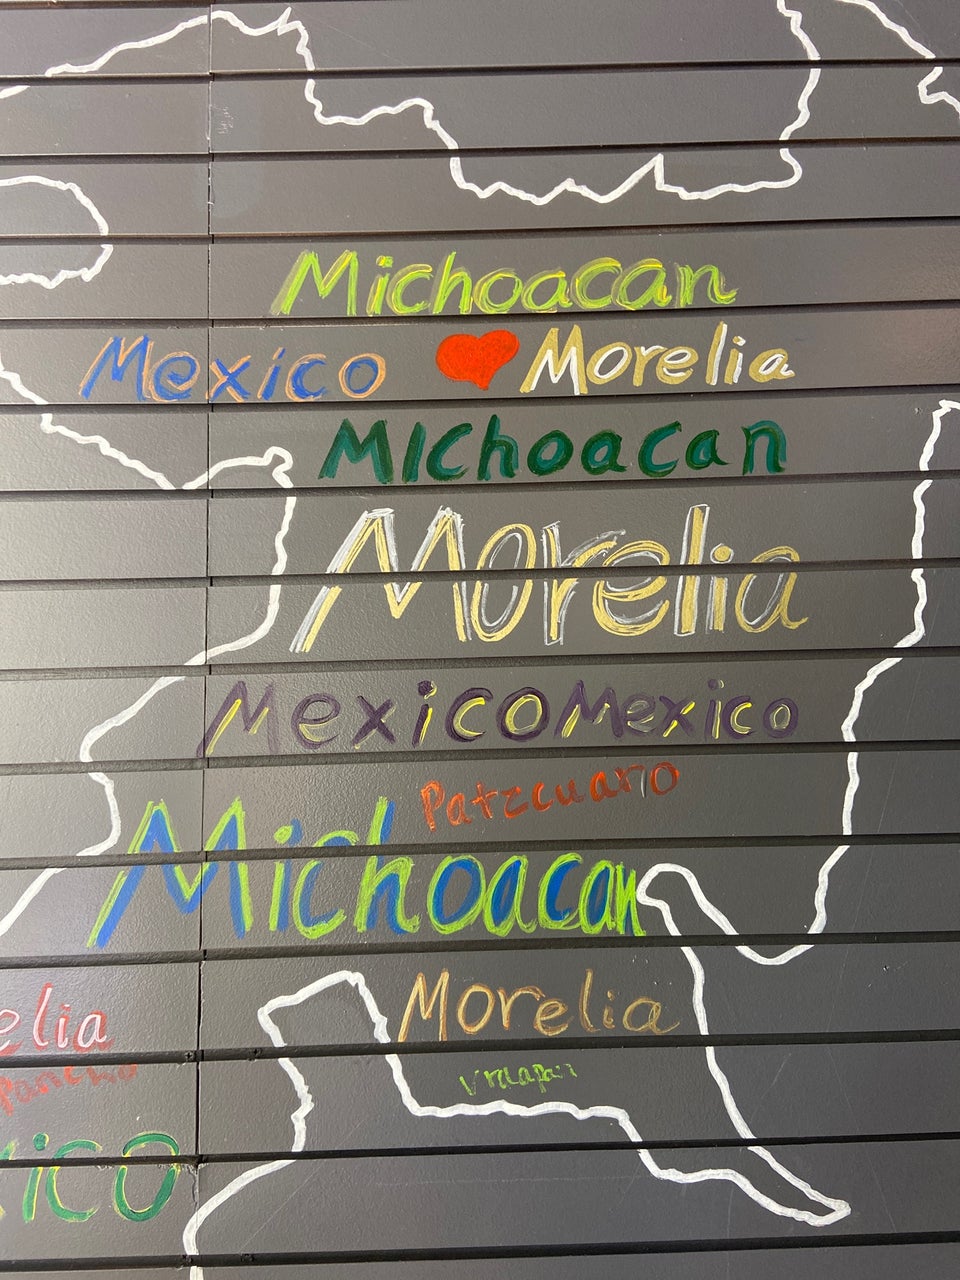 Michoacan
Mexico ❤ Morelia
MIchoacan
Morelia
MexicoMexico
Patzcuaro
Michoacan
elia Morelia
Pancho
ico